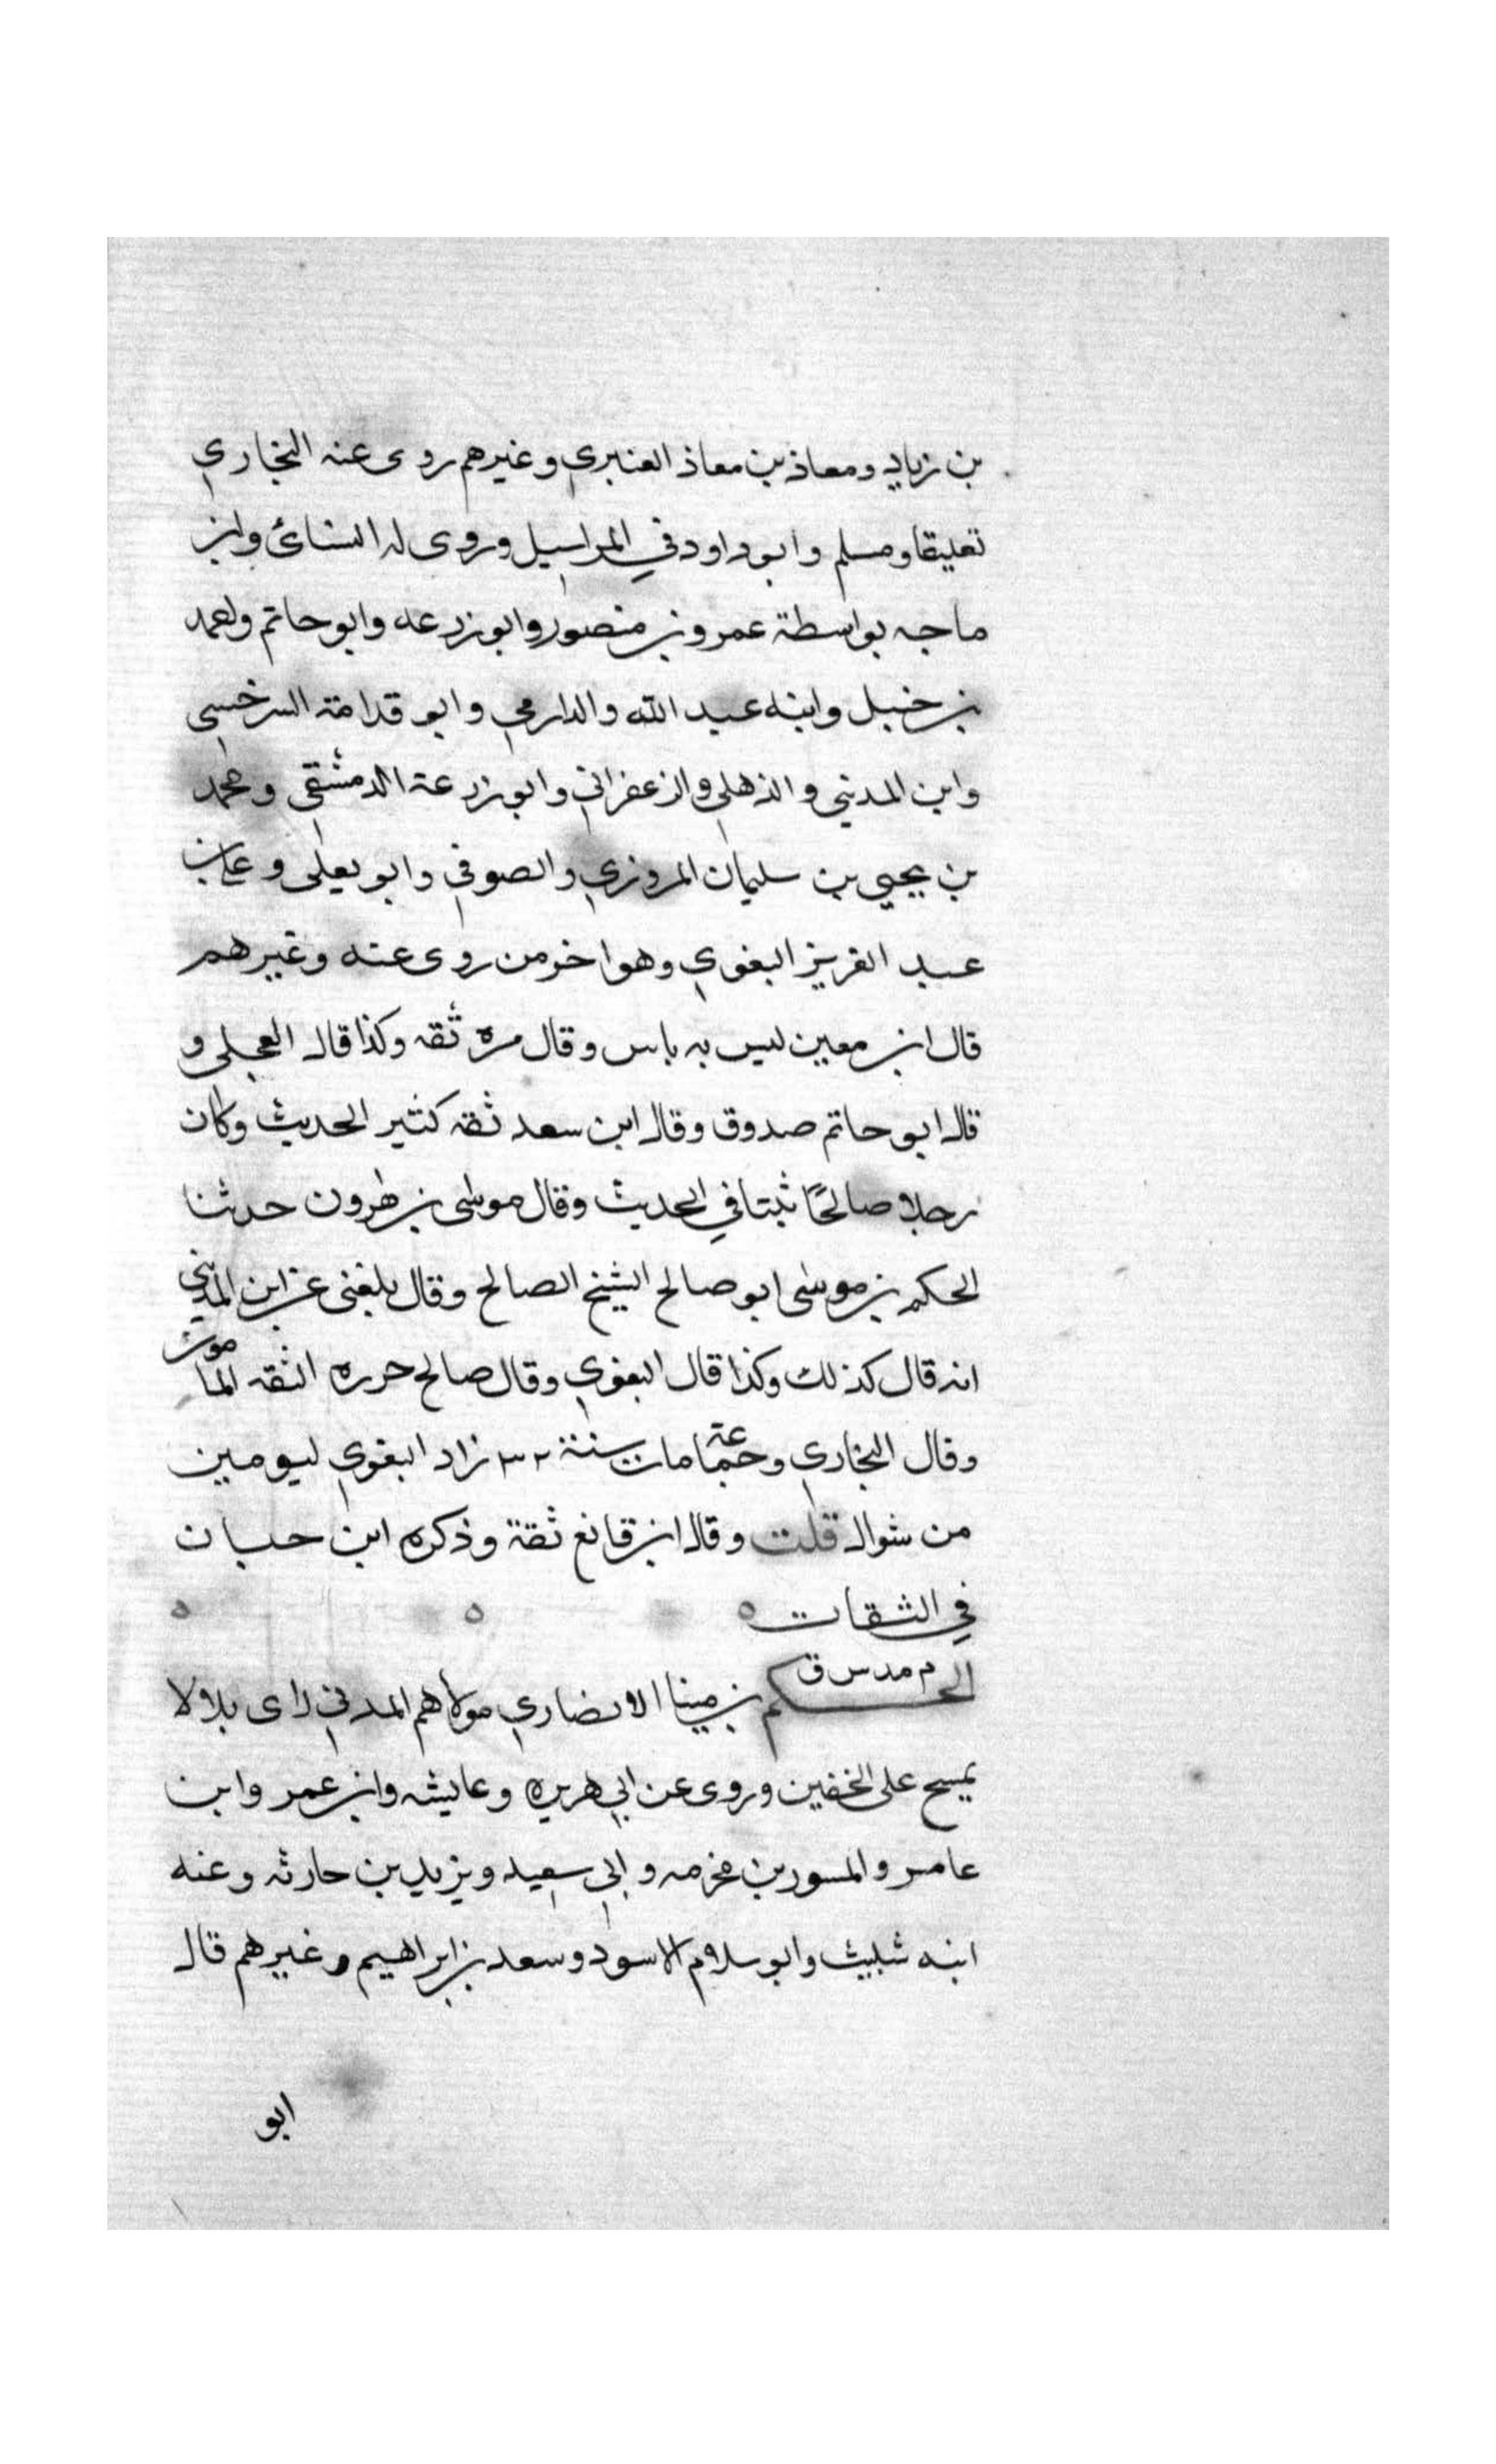 بن زياد ومعاذ بن معاذ العنبري وغيرهم روى عنه البخاري
تعليقا ومسلم وابو داود في المراسيل وروى له النسائ وابن
ماجه بواسطة عمرو بن منصور وابو زرعه وابو حاتم واحمد
بن حنبل وابنه عبد الله والدارمي وابو قدامة السرخسي
وابن المديني والذهلي والزعفراني وابو زرعة الدمشقي ومحمد
بن يحيى بن سليمان المروزي والصوفي وابو يعلى و
عبد العزيز البغوي وهو اخر من روى عنه وغيرهم
قال ابن معين ليس به باس وقال مره ثقه وكذا قال العجلى و
قال ابو حاتم صدوق وقال ابن سعد ثقه كثير الحديث وكان
رجلا صالحًا ثبتا في الحديث وقال موسى بن هرون حدثنا
الحكم بن موسى ابو صالح الشيخ الصالح وقال بلغنى عن ابن المديني
انه قال كذلك وكذا قال البغوي وقال صالح حرره الثقه المامون
وقال البخاري وجماعة مات سنة ٣٢ زاد البغوي ليومين
من شوال قلت وقال ابن قانع ثقة وذكره ابن حبان
في الثقات ه ه ه
م مد س ق
الحكم بن مينا الانصاري مولاهم المدني راى بلالا
يمسح على الخفين وروى عن ابي هريره وعايشه وابن عمر وابن
عامر والمسور بن مخرمه وابي سعيد ويزيد بن حارثه وعنه
ابنه شبيث وابو سلام الاسود وسعد بن ابراهيم وغيرهم قال
ابو